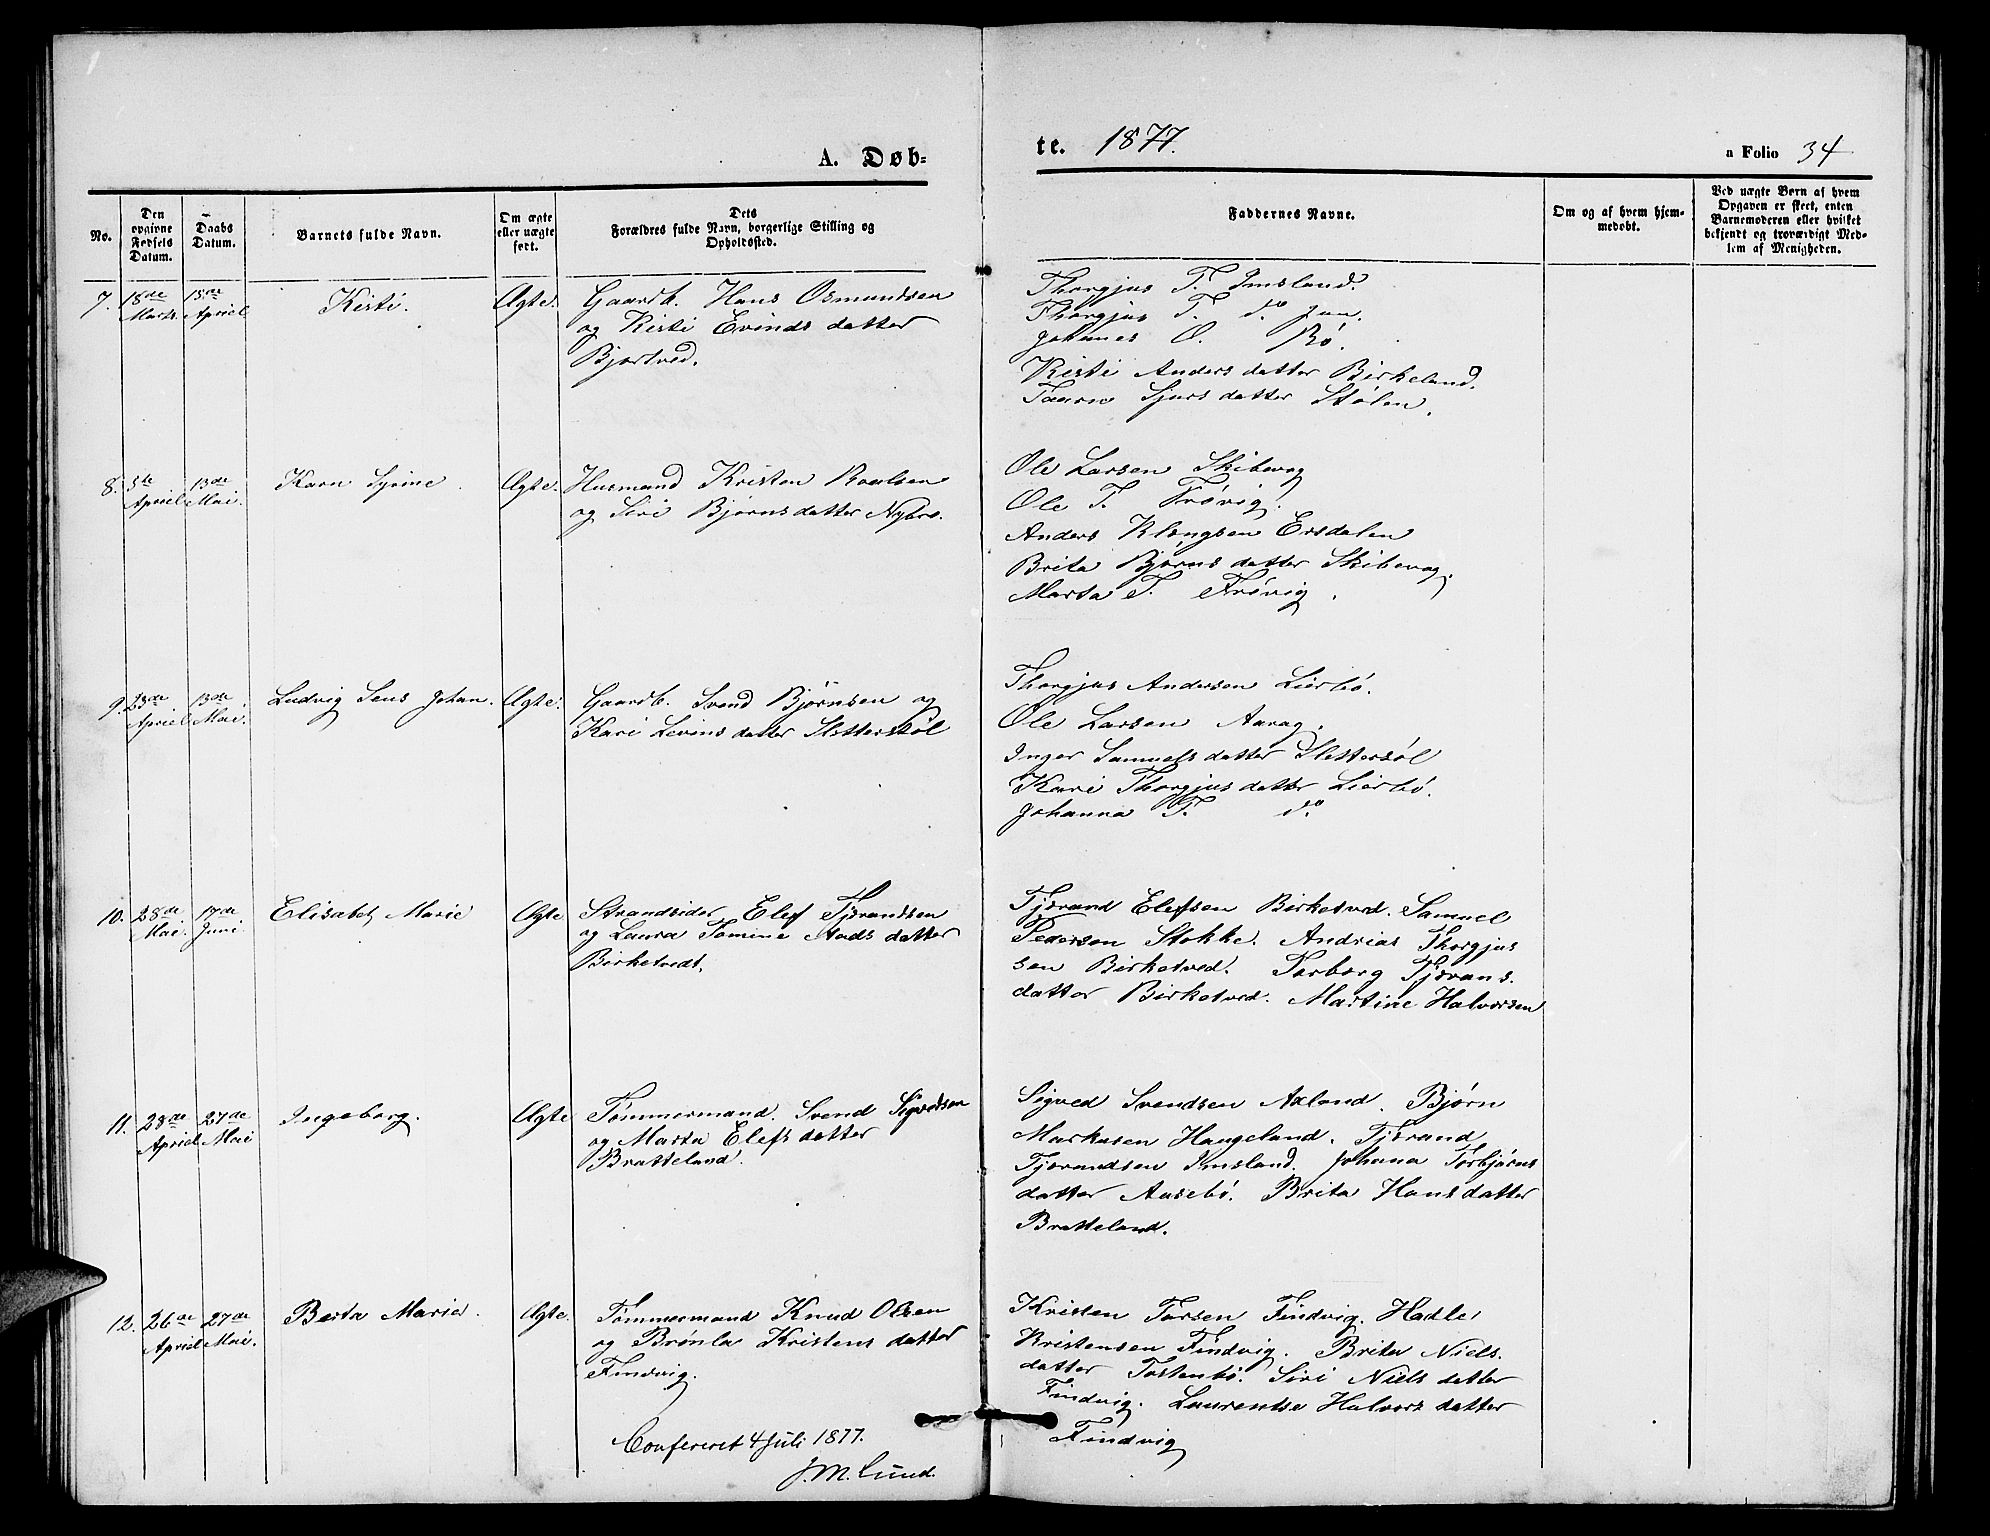 A. Døb-
te. 1877.
a Folio 34
No.
Den opgivne Fødsels Datum.
Daabs Datum.
Barnets fulde Navn.
Om ægte eller uægte født.
Dets Forældres fulde Navn, borgerlige Stilling og Opholdssted.
Faddernes Navne.
Om og af hvem hjemmedøbt.
Ved uægte Børn af hvem Opgaven er skeet, enten Barnemoderen eller hvilket bekjendt og troværdigt Medlem af Menigheden.
7. 18de Marts. 15de Apriel Kisti. Ægte. Gaardb. Hans Osmundsen
og Kisti Evindsdatter
Bjortved.
Thorgjus T. Imsland.
Thorgjus T. do Jun.
Johanes O. Rö.
Kisti Andersdatter Birkeland.
Taarn Sjursdatter Stölen.
8. 5te Apriel 13de Mai. Karn Syrine Ægte. Husmand Kristen Paalsen
og Siri Bjørnsdatter Nybro.
Ole Larsen Skibevag
Ole T. Frövig.
Anders Klongsen Ersdalen
Brita Bjørnsdatter Skibevag.
Marta T. Frövig.
9. 23de Apriel 13de Mai. Ludvig Sens Johan. Ægte. Gaardb. Svend Bjørnsen og
Kari Levinsdatter Slettestøl
Thorgjus Andersen Lierbö.
Ole Larsen Aarag.
Inger Samuelsdatter Slettesøl
Kari Thorgjusdatter Lierbö.
Johanna T. do
10. 28de Mai. 17de Juni. Elisabet Marie Ægte Strandsider Elef Tjerandsen
og Laura Tomine Aadsdatter
Birketvedt.
Tjerand Elefsen Birketved. Samuel
Pedersen Stokke. Andrias Thorgjus
sen Birketved. Torborg Tjerans.
datter Birketved. Martine Halvorsen
11. 28de Apriel 27de Mai Ingeborg. Ægte Tømmermand. Svend Sigvedsen
og Marta Elefsdatter
Bratteland.
Sigved Svendsen Axland. Bjørn
Markusen Haugeland. Tjerand
Tjerandsen Imsland. Johana Torbjørns
datter Aasebö. Brita Hansdatter
Bratteland.
12. 26de Apriel 27de Mai. Berta Maria. Ægte. Tømmermand Knud Olsen
og Brønla Kristensdatter
Findvig.
Kristen Torsen Findvig. Hadle
Kristensen Findvig. Brita Niels.
datter Tostenbö. Siri Nielsdatter
Findvig. Laurentse Halvorsdatter
Findvig
Confereret 4 Juli 1877.
J. M. Lund.